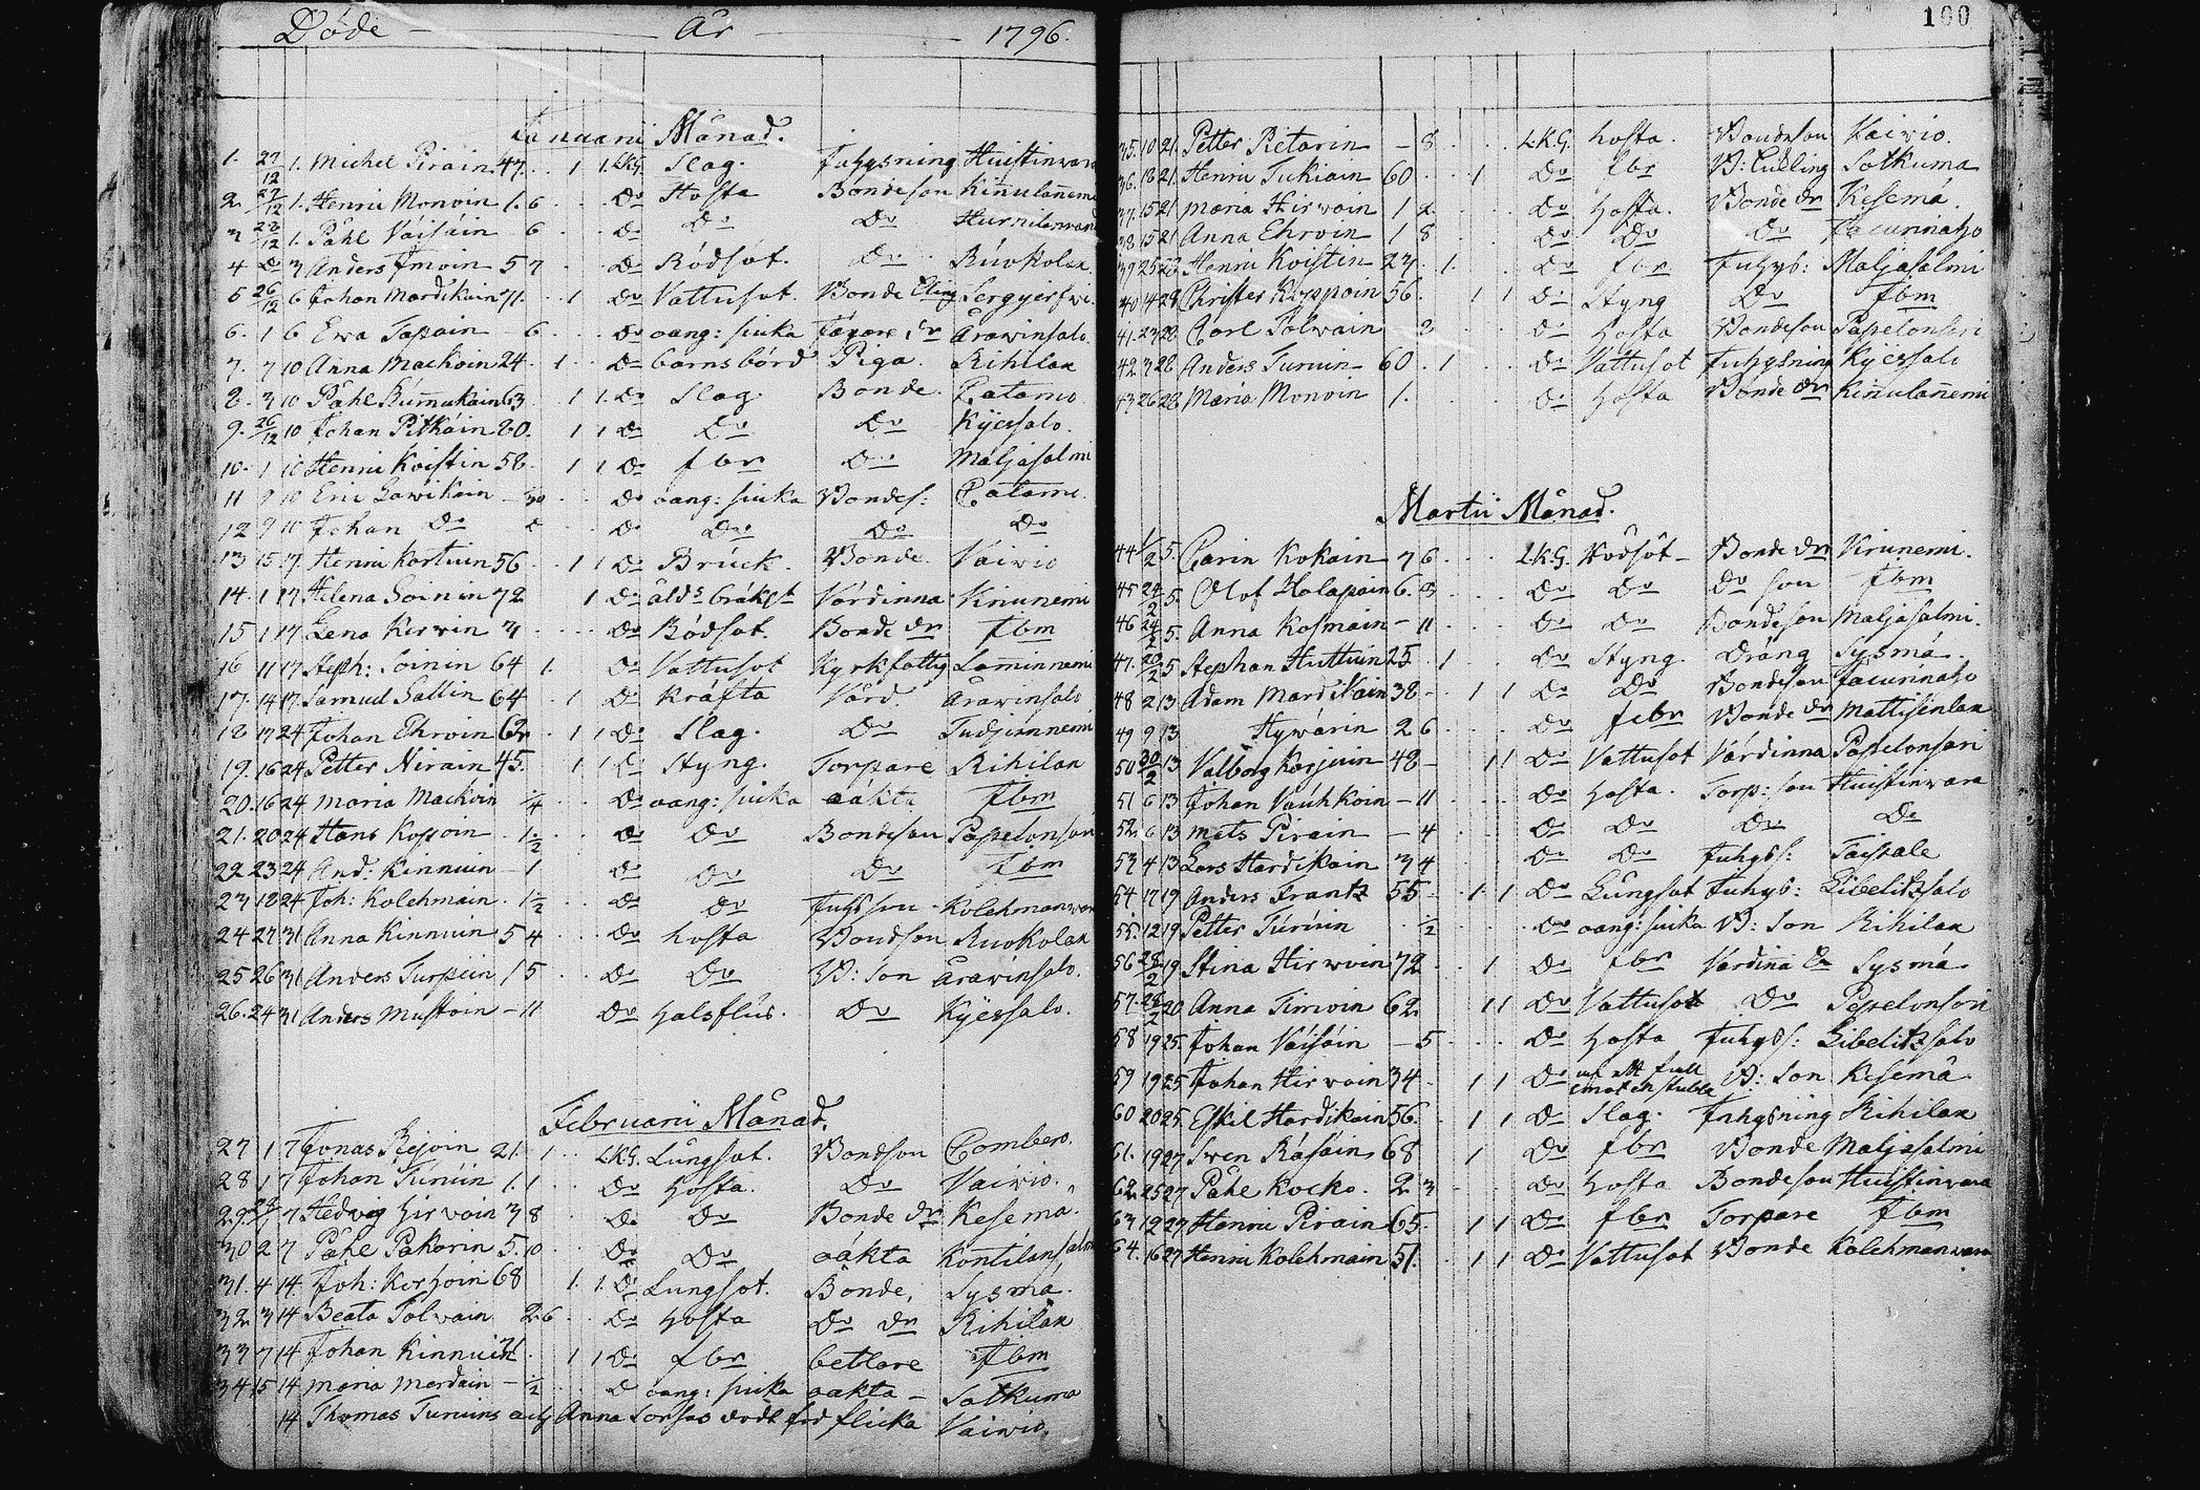 Döde År 1796.
Januarii Månad.
1. 27/12 1. Michel Pirain 47. 1 1. LKG. Slag. Inhysning Huistinvara
2. 27/12 1. Henric Monoin 1. 6 Do Hosta Bondeson Kinnulanemi
3 28/12 1. Påhl Väisäin 6 Do Do Do
4 Do 3 Anders Imoin 5 7 Do Rödsot. Do Ruokolax
5 26/12 6 Johan Mardikain 71. 1 Do Vattusot. Bonde
6. 1 6 Ewa Tapain 6 Do oang: siuka dr Årawinsalo
7. 7 10 Anna Mackoin 24 1 Do barnsbörd Piga. Rihilax
8. 3 10 Påhl Rummukain 63 1 1. Do Slag. Bonde Catamo
9. 26/12 10 Johan Pitkäin 80. 1 1 Do Do Do Kyessalo.
10. 1 10 Henric Koistin 58. 1 1 Do fbr Do Maljasalmi
11 9 10 Eric Lawikain Do oang: siuka Bondes: Catamo.
12 9 10 Johan Do Do Do Do Do
13 15 17. Henric Kortuin 56 1 1 Do Bråck. Bonde. Vaivio
14. 1 17 Helena Soinin 72 1 Do ålds bräklt Värdinna Kinunemi
15 1 17 Lena Kirwin 3 Do Rödsot. Bonde dr Ibm
16 11 17 Steph: Soinin 64 1. Do Vattusot Kyrkfattig Laminnemi
17. 14 17. Samuel Sallin 64 1 Do Kräfta Värd. Årawinsalo
18 17 24 Johan Ehroin 62 1 1 Do Slag. Do
19. 16 24 Petter Hirain 45. 1 1 Do Styng. Torpare Rihilax
20. 16 24 Maria Mackoin 1/4 Do oang: siuka oäkta Ibm
21. 20 24 Hans Kopoin 1 1/2 Do Do Bondeson Papelonsari
22 23 24 And: Kinnuin - 1 Do Do Do Ibm
23 18 24 Joh: Kolehmain 1 1/2 Do Do Inhysson Kolehmanvara
24 27 31 Anna Kinnuin 5 4 Do hosta Bondson Ruokolax
25 26 31 Anders Turpein 1 5 Do Do B: Son Årawinsalo.
26. 24 31 Anders Mustoin - 11 Do Halsflus. Do Kyessalo.
Februarii Månad.
27 1 7 Jonas Rejoin 21. 1 LKG. Lungsot. Bondson Combero.
28 1 7 Johan Turuin 1. 1 Do Hosta. Do Vaivio.
29. 7 Hedvig Hirvoin 3 8 Do Do Bonde dr Kesemä.
30 2 7 Påhl Pakarin 5. 10 Do Do oäkta Kontilansalmi
31. 4 14. Joh: Korhoin 68 1. 1. Do Lungsot. Bonde, Sysmä.
32. 3 14 Beata Tolwain 2. 6 Do Hosta Do dr Rihilax
33 7 14 Johan Kinnuin 1 1 Do fbr betlare Ibm
34 15 14 Maria Mardain - 1/2 Do oang: siuka oäkta - Sotkuma
14 Thomas Turuins och Anna Sorsas dödt fod flicka Vaivio.
100
35. 10 21 Petter Pietarin - 8 LKG. hosta. Bondeson Vaivio.
36. 18 21. Henric Tukiain 60 1 Do fbr Sotkuma
37. 15 21 Maria Hirvoin 1 2. Do Hosta. Bonde dr Kesemä.
38 15 21 Anna Ehroin 1 8 Do Do Do Jacurinaho
39 25 28 Henric Koistin 27. 1. Do fbr Inhys: Maljasalmi
40 14 28 Christer Koppoin 56. 1 1 Do Styng Do Ibm
41. 27 28 Carl Tolwain 3 Do Hosta Bondeson Papelonsari
42. 3 28 Anders Turuin - 60. 1 Do Vattusot Inhysning Kyessalo
43 26 28 Maria Monoin 1. Do Hosta Bonde dr Kinnulanemi
Martii Månad.
44 1/2 5. Carin Kokain 7 6 LKG. Rödsot - Bonde dr Kinunemi.
45 24/2 5. Olof Holapain 6. 3 Do Do Do son Ibm
46 24/2 5. Anna Kosmain - 11 Do Do Bondeson Maljasalmi.
47. 20/2 5 Stephan Huttuin 25. 1 Do Styng. Dräng Sysmä.
48 2 13 Adam Mardikain 38 1 1 Do Do Bondeson Jacurinaho
49 9 13 Hywärin 2 6 Do febr Bonde dr Mattisenlax
50 20/2 13 Valborg Karjuin 48 - 1 1 Do Vattusot Värdinna Papelonsari
51 6 13 Johan Vauhkoin - 11 Do Hosta. Torp: son Huistinvara
52. 6 13 Mats Pirain - 4 Do Do Do Do
53 4 13 Lars Hardikain 3 4 Do Do Inhyss: Taipale
54 17 19 Anders Frantz 55 1 1 Do Lungsot Inhys: Libelitzsalo
55. 12 19 Petter Turuin 1/2 Do oang: siuka B: Son Rihilax
56 28/2 19 Stina Hirvoin 72 1 Do fbr Värdinna Sysmä
57. 28/2 20 Anna Timoin 62 1 1 Do Vattusot Do Papelonsari
58 19 25. Johan Väisäin - 5 Do Hosta Inhyss: Libelitzsalo
59 19 25 Johan Hirvoin 34. 1 1 Do af ett fall emot en stubbe B: Son Kesemä
60 20 25. Eskil Hardikain 56. 1 1 Do Slag. Inhysning Rihilax
61. 19 27 Swen Räsäin 68 1 Do fbr Bonde Maljasalmi
62. 25 27 Påhl Kocko. 2. 3 Do Hosta Bondeson Huistinvara
63 19 27 Henric Pirain 65. 1 1 Do fbr Torpare Ibm
64. 16 27 Henric Kolehmain 51. 1 1 Do Vattusot Bonde Kolehmanvara